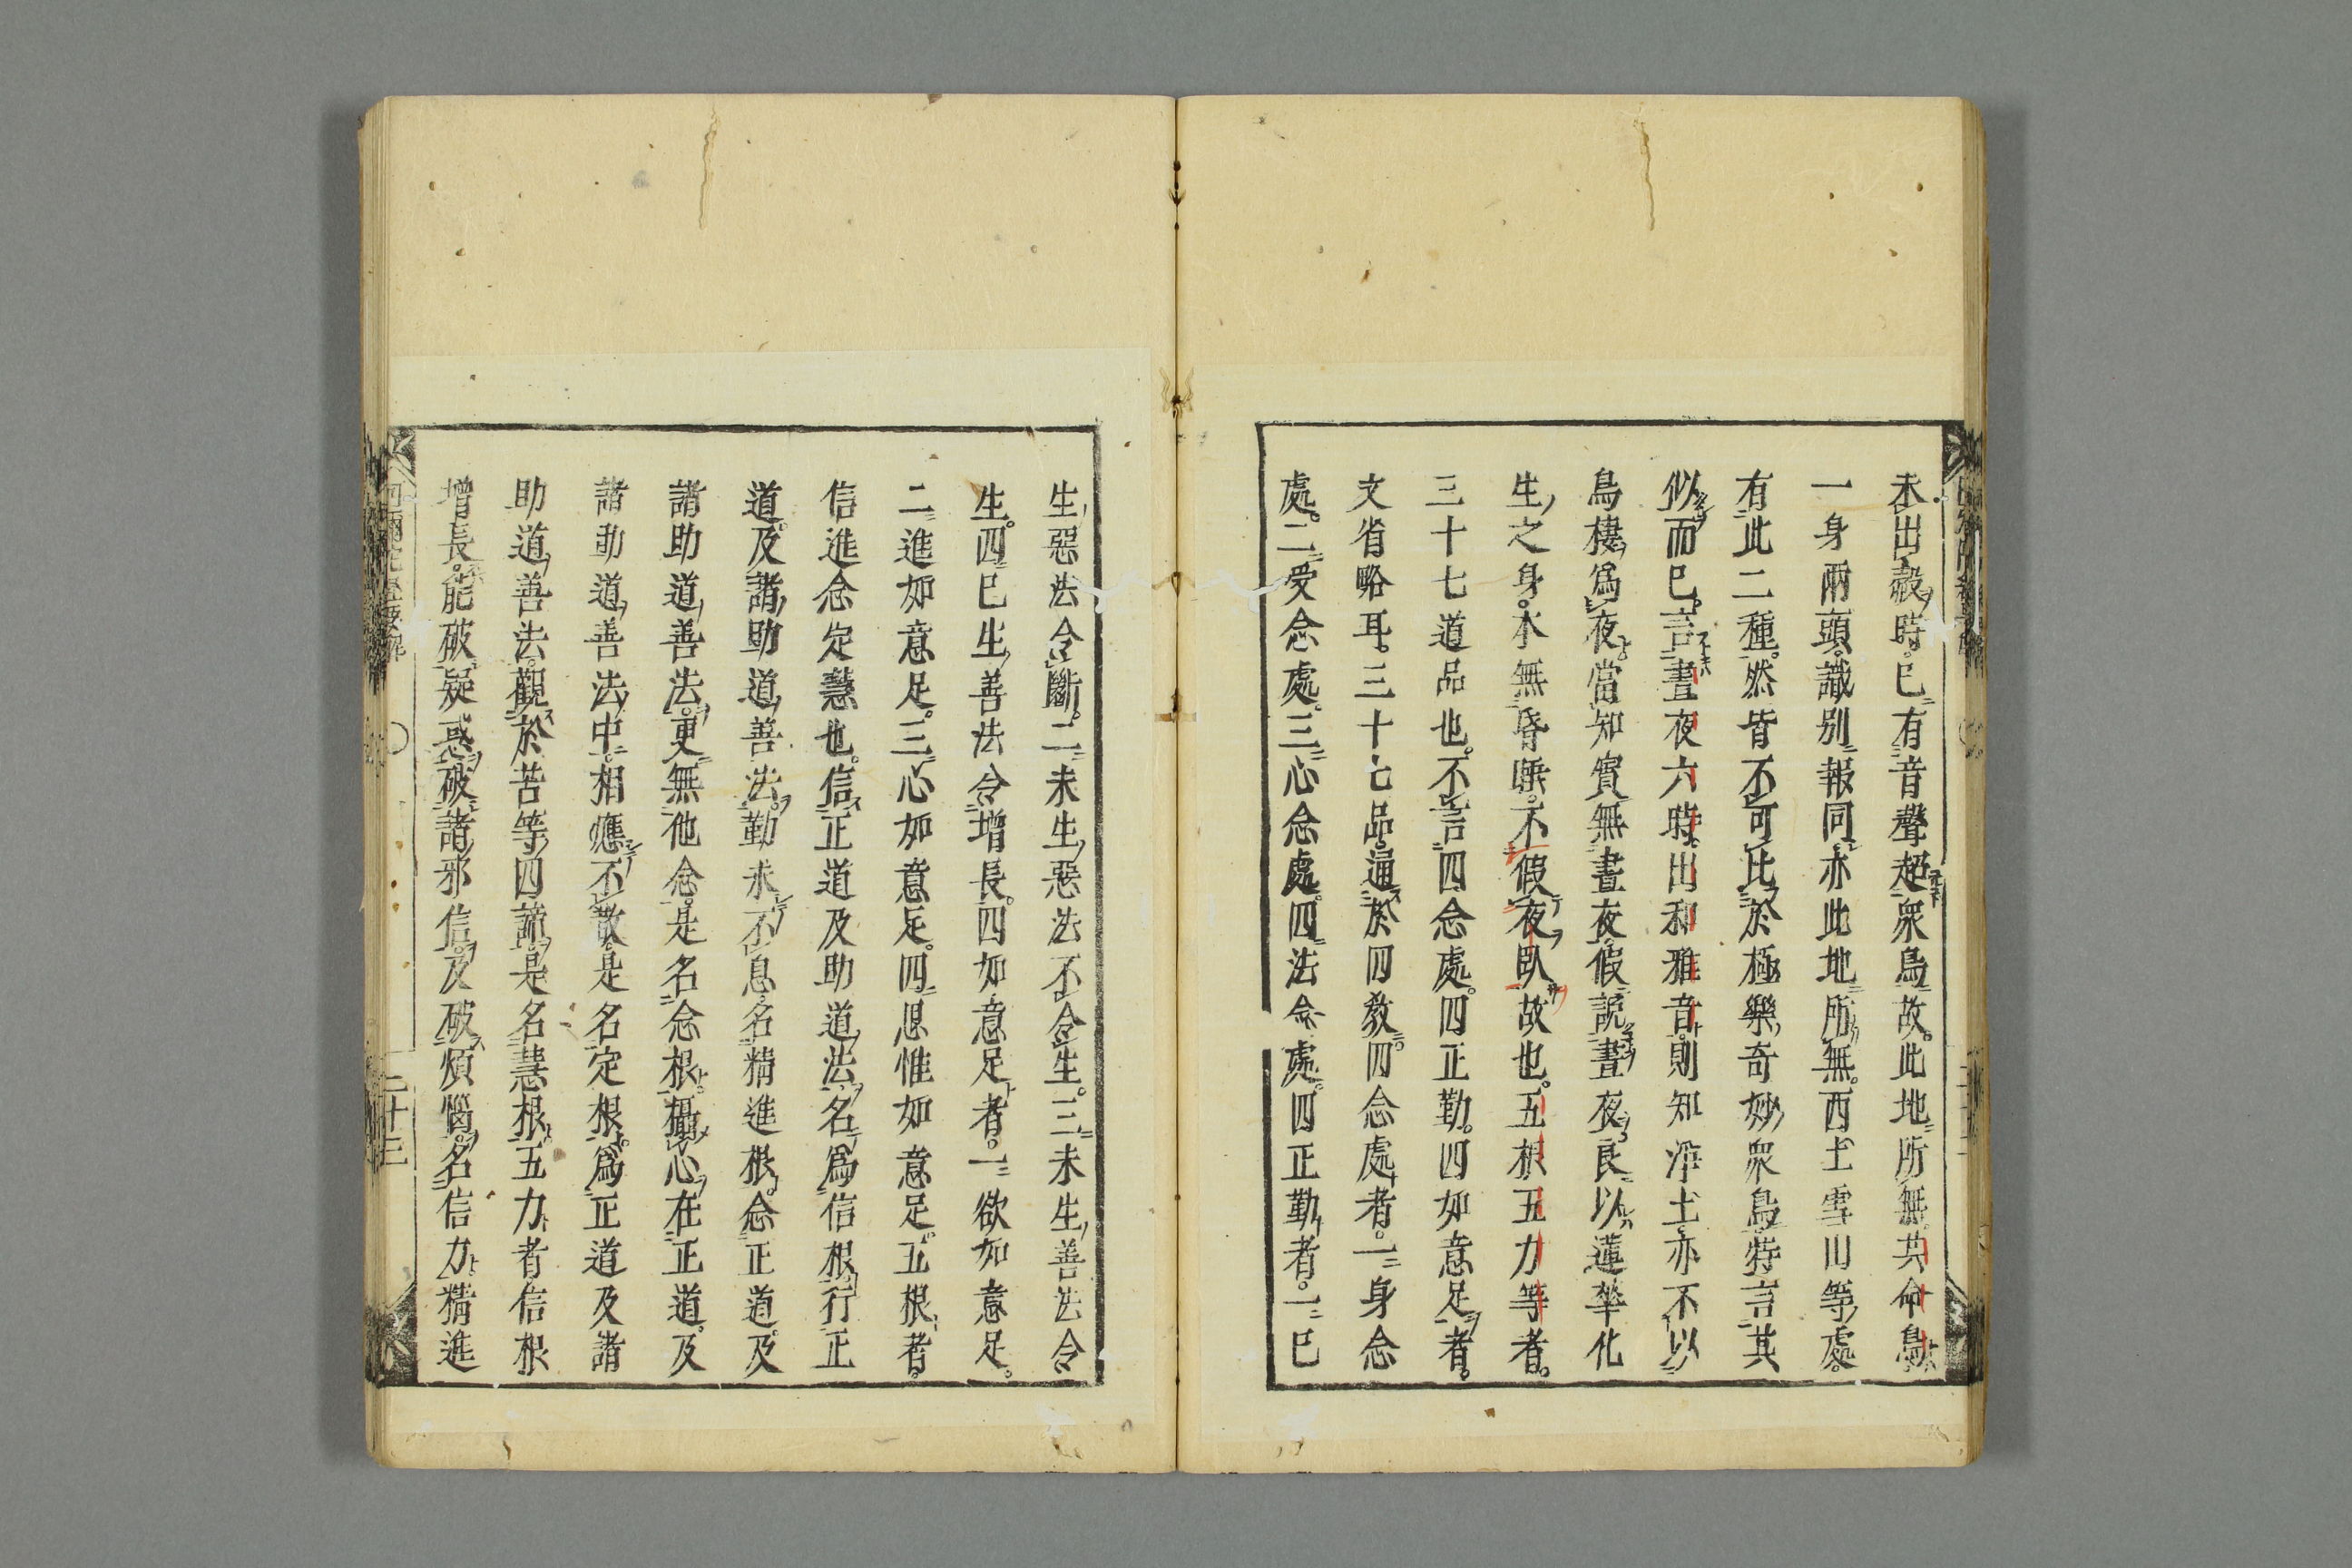 未出㲉時。已有音聲超衆鳥故。此地所無。共命鳥
一身兩頭。識别報同。亦此地所無。西土雪山等處。
有此二種。然皆不可比於極樂奇妙衆鳥。特言其
似而已。言晝夜六時。出和雅音。則知淨土亦不以
鳥棲爲夜。當知實無晝夜。假說晝夜。良以蓮華化
生之身。本無昏睡。不假夜臥故也。五根五力等者。
三十七道品也。不言四念處。四正勤。四如意足者。
文省略耳。三十七品。通於四敎。四念處者。一身念
處。二受念處。三心念處。四法念處。四正勤者。一已
生惡法令斷。二未生惡法不令生。三未生善法令
生。四已生善法令增長。四如意足者。一欲如意足。
二進如意足。三心如意足。四思惟如意足。五根者。
信進念定慧也。信正道及助道法。名爲信根。行正
道及諸助道善法。勤求不息。名精進根。念正道及
諸助道善法。更無他念。是名念根。攝心在正道。及
諸助道善法中。相應不散。是名定根。爲正道及諸
助道善法。觀於苦等四諦。是名慧根。五力者。信根
增長。能破疑惑。破諸邪信。及破煩惱。名信力。精進
阿彌陀經要解
二十三